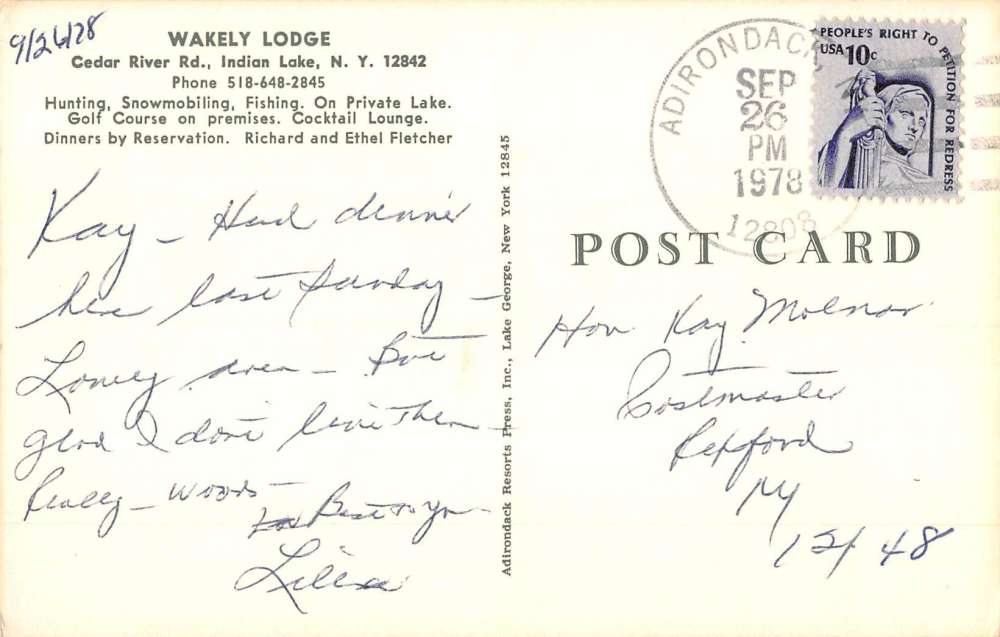 9/26/78
WAKELY LODGE
Cedar River Rd., Indian Lake, N. Y. 12842
Phone 518-648-2845
Hunting, Snowmobiling, Fishing. On Private Lake.
Golf Course on premises. Cocktail Lounge.
Dinners by Reservation. Richard and Ethel Fletcher
Kay – Had dinner
here last Sunday –
Lovely area – But
glad I don't live there –
Really – woods –
Best to you
Adirondack Resorts Press, Inc., Lake George, New York 12845
ADIRONDACK
SEP
26
PM
1978
12808
PEOPLE'S RIGHT TO PETITION FOR REDRESS
USA 10c
POST CARD
Hon Kay Molnar
Postmaster
Rexford
NY
12148